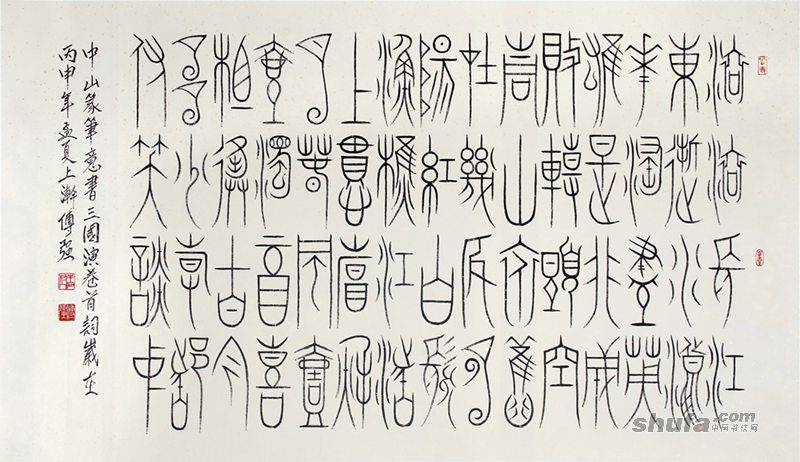 滾滾長江
東逝水浪
華淘盡英
雄是非成
敗轉頭空
青山依舊
在幾度夕
陽紅白髮
漁樵江渚
上慣看秋
月春風一
壺濁酒喜
相逢古今
多少事都
付笑談中
中山篆筆意書三國演卷首詞歲在
丙申年孟夏上澣傅强
shufa.com
中国书法网